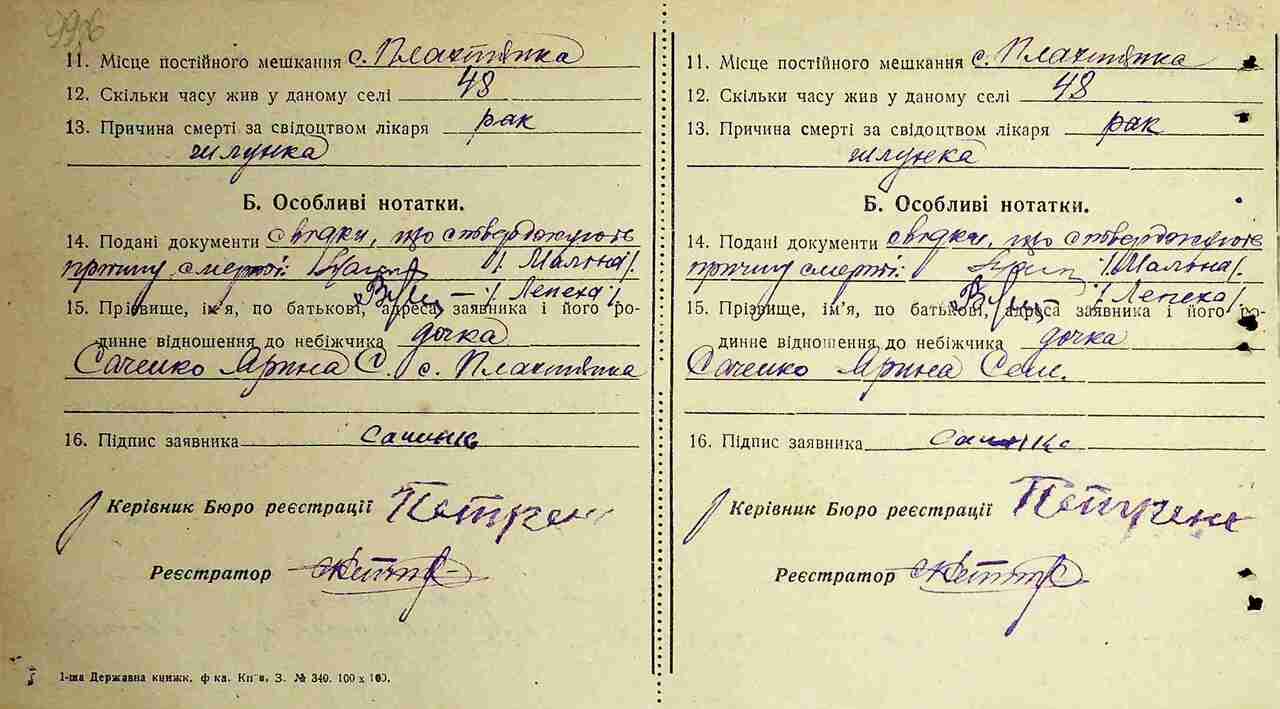 996
11. Місце постійного мешкання с. Плахтянка
12. Скільки часу жив у даному селі 48
13. Причина смерті за свідоцтвом лікаря рак
шлунка
Б. Особливі нотатки.
14. Подані документи свідки, що стверджують
причину смерті: /Мальна/.
/Лепеха/
15. Прізвище, ім'я, по батькові, адреса заявника і його ро-
динне відношення до небіжчика дочка
Саченко Ярина С. с. Плахтянка
16. Підпис заявника
Керівник Бюро реєстрації Петрен
Реєстратор
1-ша Державна книжк. ф-ка. Київ. З. № 340. 100 х 100.
11. Місце постійного мешкання с. Плахтянка
12. Скільки часу жив у даному селі 48
13. Причина смерті за свідоцтвом лікаря рак
шлунка
Б. Особливі нотатки.
14. Подані документи свідки, що стверджують
причину смерті: /Мальна/.
/Лепеха/.
15. Прізвище, ім'я, по батькові, адреса заявника і його ро-
динне відношення до небіжчика дочка
Саченко Ярина Сем.
16. Підпис заявника
Керівник Бюро реєстрації Петренк
Реєстратор